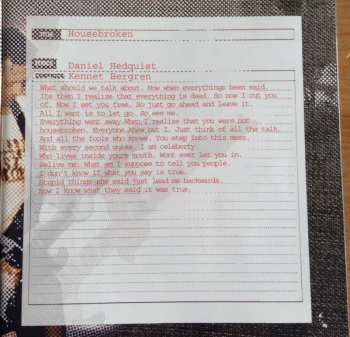 Housebroken
Daniel Hedquist
Kennet Bergren
What should we talk about. Now when everythings been said.
Its then I realize that everything is dead. So now I cut you
of. Now I set you free. So just go ahead and leave it.
All I want is to let go. So see me.
Everything went away.When I realise that you were not
housebroken. Everyone knew but I. Just think of all the talk.
And all the fools who knows. You step into this mess.
With every second guess. I am celebrity.
Who lives inside youre mouth. Wont ever let you in.
Relive me. What am I suppose to tell you people.
I don't know if what you say is true.
Stupid things she said just lead me backwards.
Now I know what they said it was true.